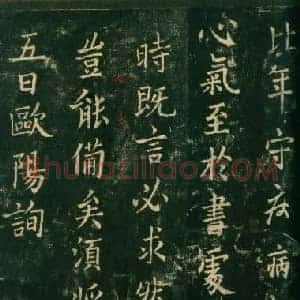 比年守疾病
心氣至於書處
時既言必求然
豈能備矣須將
五日歐陽詢